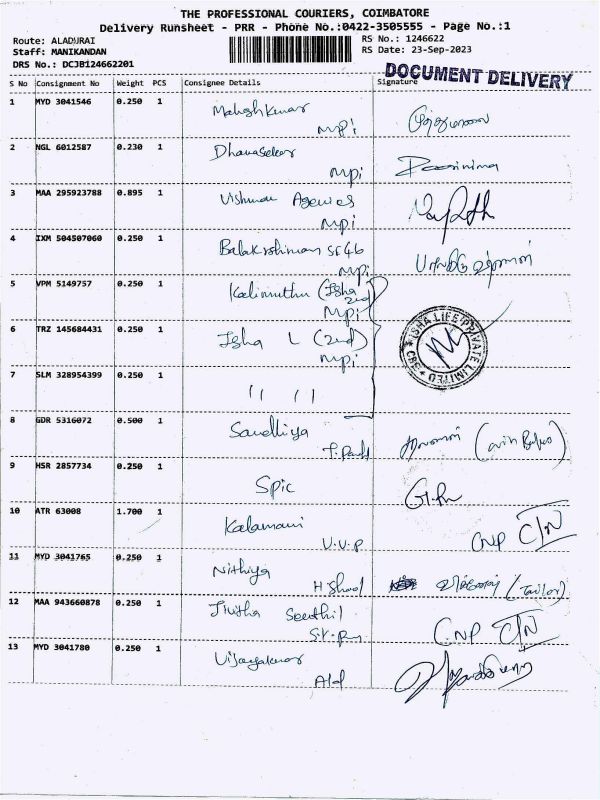 THE PROFESSIONAL COURIERS, COIMBATORE
Delivery Runsheet - PRR - Phone No.:0422-3505555 - Page No.:1
Route: ALADURAI
RS No.: 1246622
Staff: MANIKANDAN
RS Date: 23-Sep-2023
DRS No.: DCJB124662201
DOCUMENT DELIVERY
S No Consignment No Weight PCS Consignee Details Signature
1 MYD 3041546 0.250 1 Maheshkumar
MPi
2 NGL 6012587 0.230 1 Dhanasekar
MPi
3 MAA 295923788 0.895 1 Vishnu Agencies
MPi
4 IXM 504507060 0.250 1 Balakrishnan
MPi
5 VPM 5149757 0.250 1 Kalimuthu (Isha 2nd)
MPi
6 TRZ 145684431 0.250 1 Isha L (2nd)
MPi
ISHA LIFE PRIVATE LIMITED CBS
7 SLM 328954399 0.250 1 " "
8 GDR 5316072 0.500 1 Sandhiya
9 HSR 2857734 0.250 1 Spic
10 ATR 63008 1.700 1 Kalamani CNP C/N
V.V.P
11 MYD 3041765 0.250 1 Nithiya (Tailor)
12 MAA 943660878 0.250 1 Senthil CNP C/N
13 MYD 3041780 0.250 1 Vijayakumar